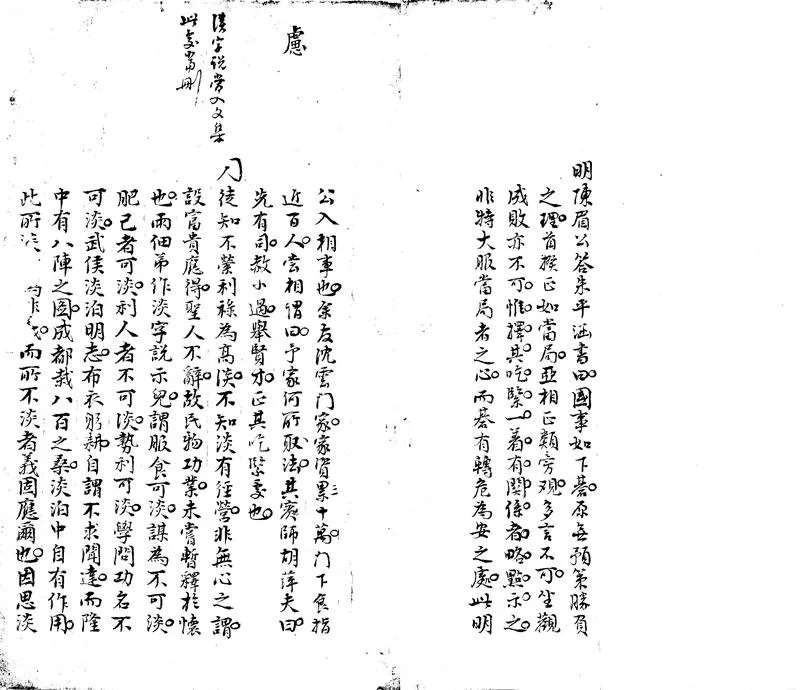 明陳眉公答朱平涵書曰國事如下棊原無預策勝負
之理首揆正如當局亞相正類旁觀多言不可坐觀
成敗亦不可惟擇其吃緊一着有關係者略點示之
非特大服當局者之心而棊有轉危為安之處此明
慮
淡字說當入文集
此處當刪
公入相事也余友沈雲門家家資累二十萬門下食指
近百人嘗相謂曰予家何所取法其賓師胡萍夫曰
先有司赦小過舉賢才正其吃緊處也
徒知不榮利祿為高淡不知淡有經營非無心之謂
設富貴應得聖人不辭故民物功業未嘗暫釋於懷
也兩佃弟作淡字說示兒謂服食可淡謀為不可淡
肥己者可淡利人者不可淡勢利可淡學問功名不
可淡武侯淡泊明志布衣躬耕自謂不求聞達而隆
中有八陣之圖成都栽八百之桑淡泊中自有作用
此所淡 而所不淡者義固應爾也因思淡